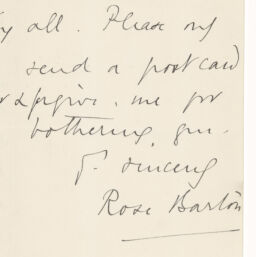 all. Please
send a postcard
& forgive me for
bothering you.
Yr. sincerely
Rose Barton